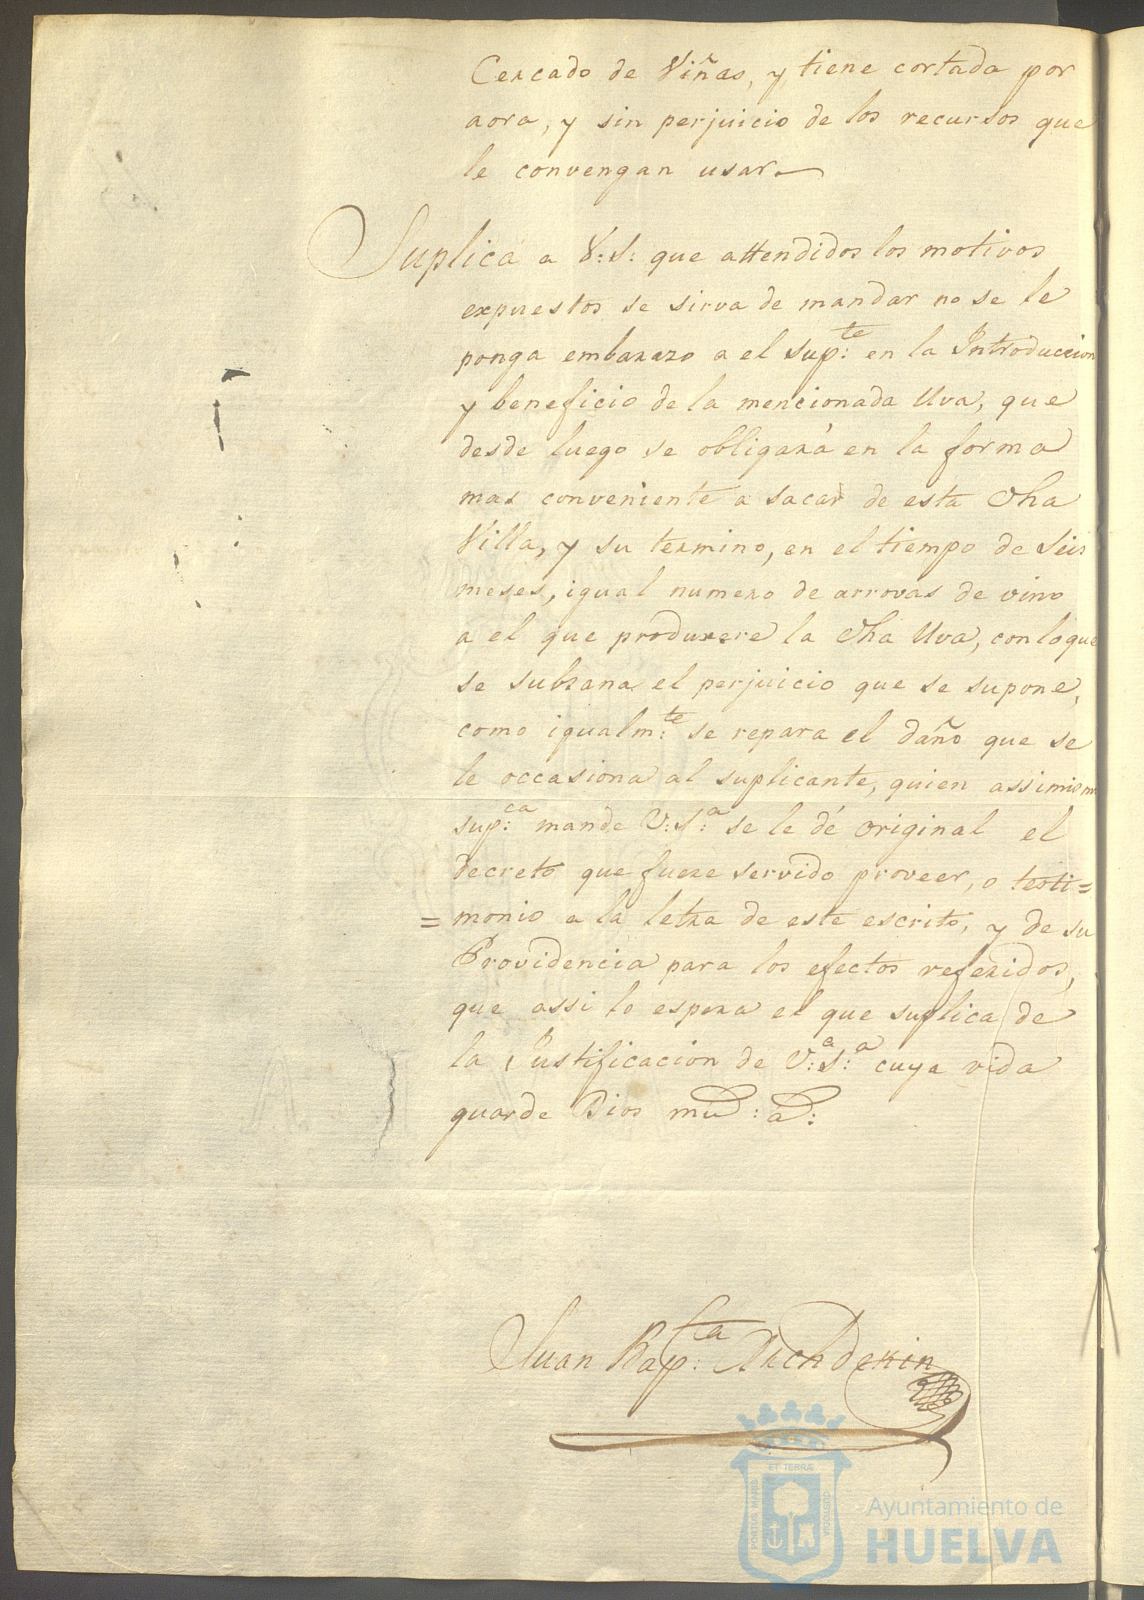 Cercado de Viñas, y tiene cortada por
aora, y sin perjuicio de los recursos que
le convengan usar.
Suplica a V.S. que attendidos los motivos
expuestos se sirva de mandar no se le
ponga embarazo a el sup.te en la Introduccion
y beneficio de la mencionada Uva, que
desde luego se obligará en la forma
mas conveniente a sacar de esta dha
Villa, y su termino, en el tiempo de Seis
meses, igual numero de arrovas de vino
a el que produxere la dha Uva, con lo que
se subsana el perjuicio que se supone,
como igualm.te se repara el daño que se
le occasiona al suplicante, quien assimism
sup.ca mande V.S.a se le dé original el
decreto que fuere servido proveer, o testi=
=monio a la letra de este escrito, y de su
Providencia para los efectos referidos,
que assi lo espera el que suplica de
la Justificacion de V.a S.a cuya vida
guarde Dios m.s a.s
Juan Bap.ta
PORTUS MARIS ET TERRÆ CUSTODIA
Ayuntamiento de
HUELVA